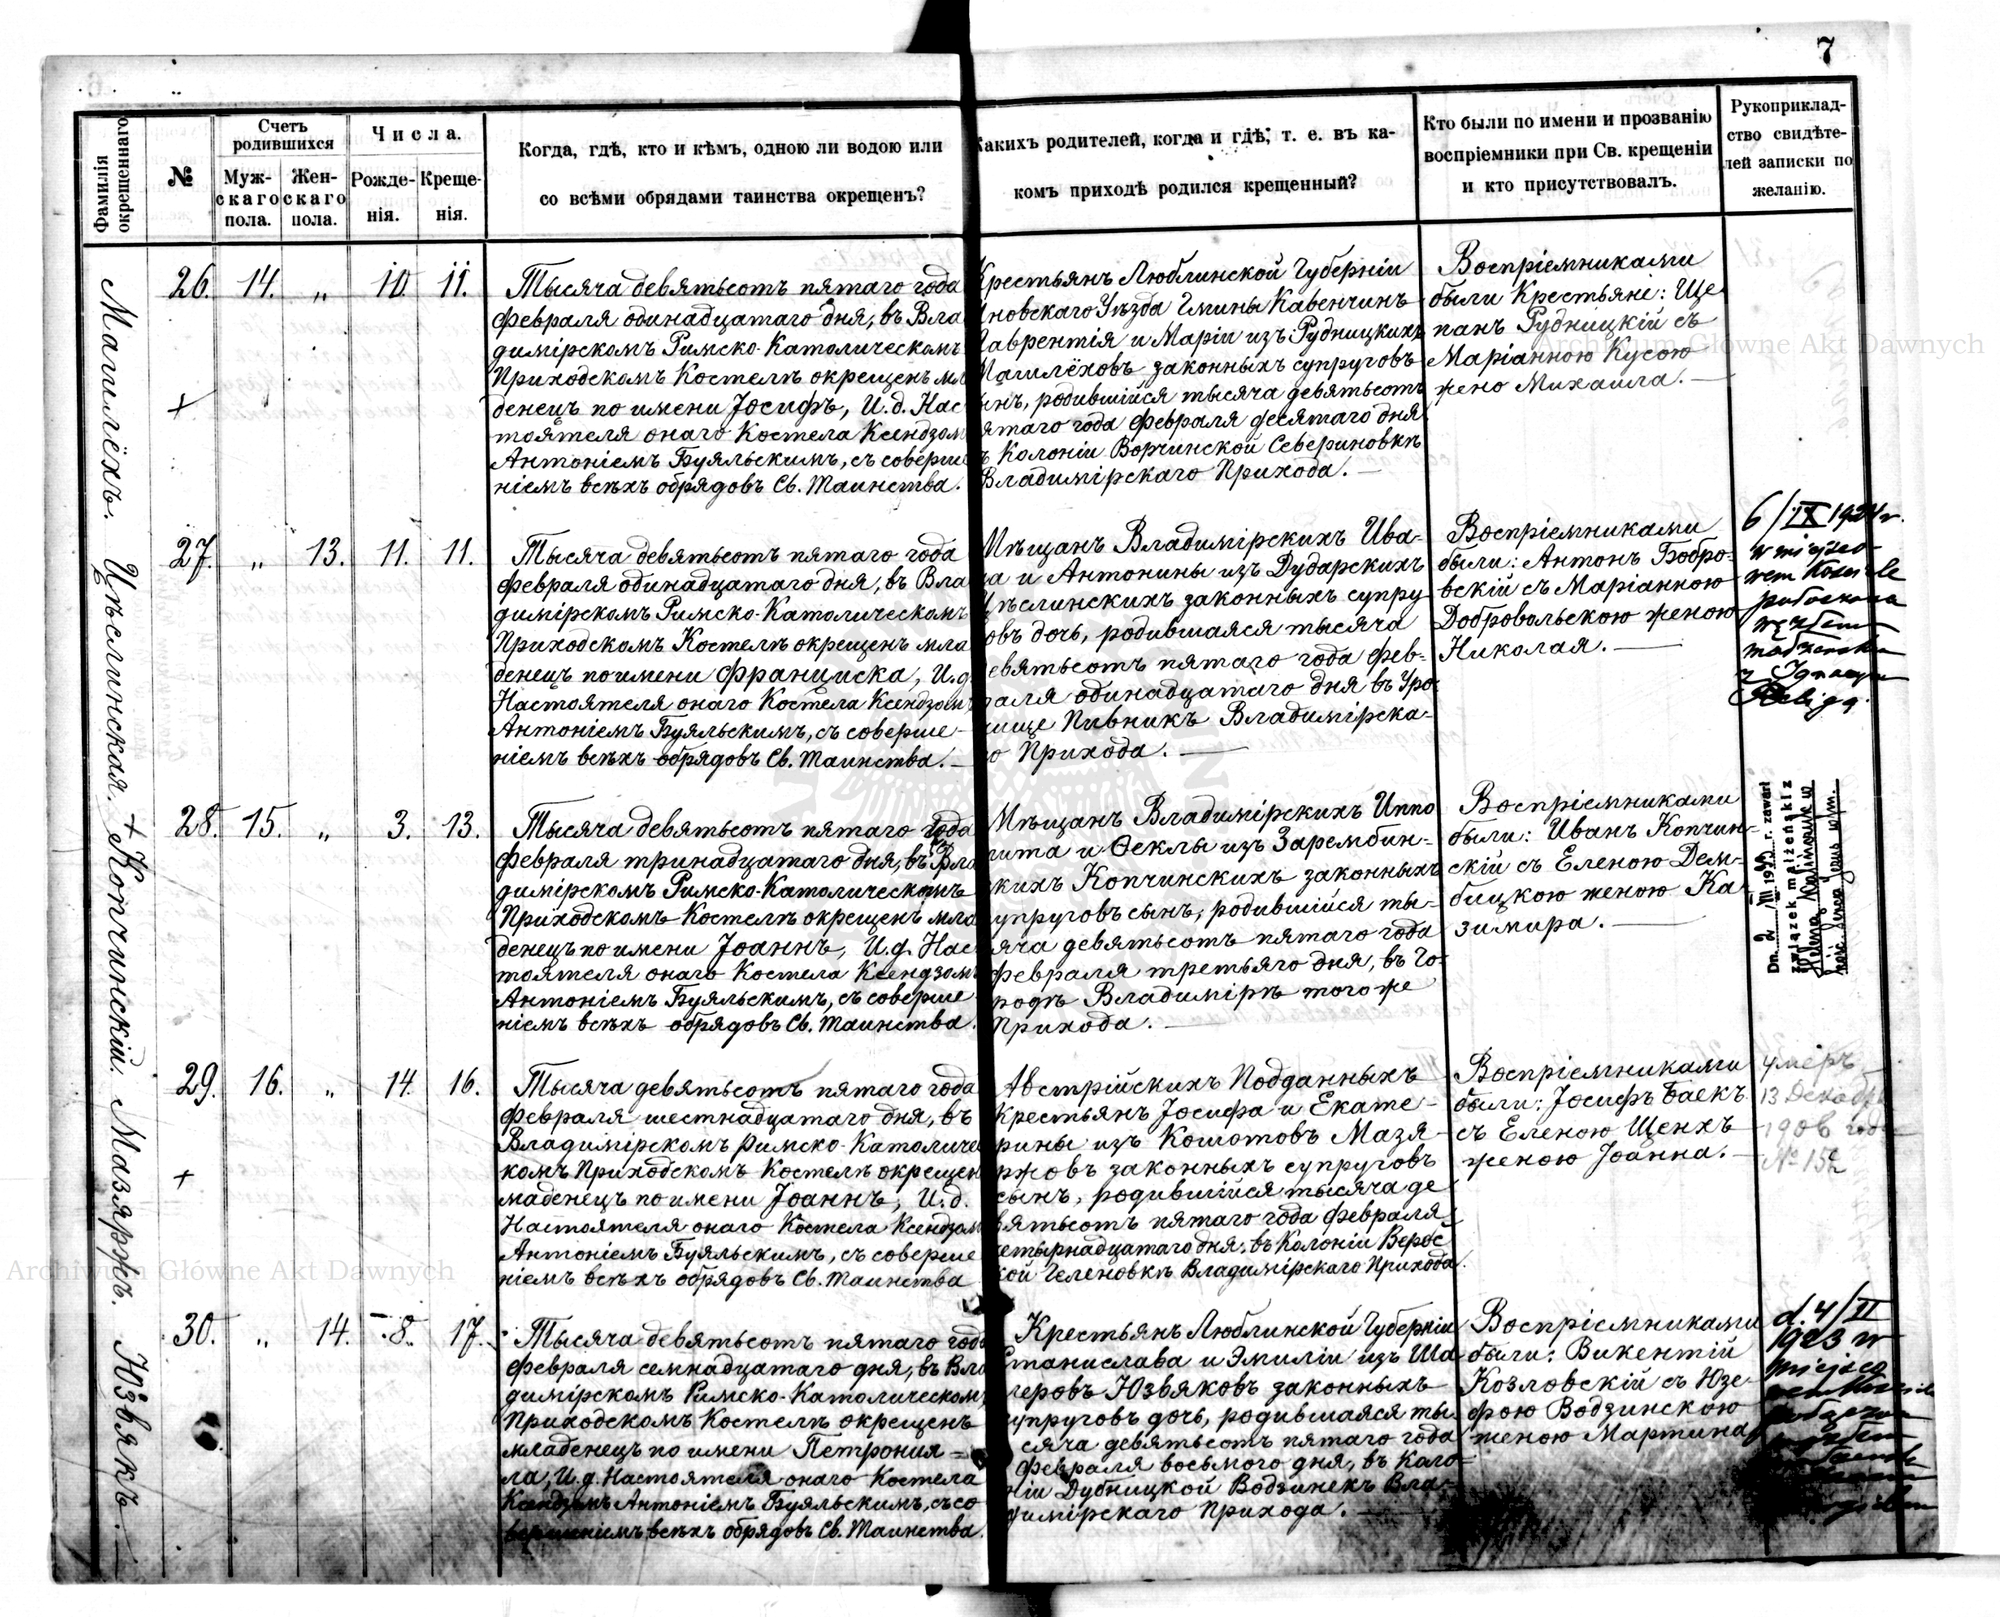 7
Фамилія
окрещеннаго.
№
Счетъ
родившихся
Муж-
скаго
пола.
Жен-
скаго
пола.
Числа.
Рожде-
нія.
Креще-
нія.
Когда, гдѣ, кто и кѣмъ, одною ли водою или
со всѣми обрядами таинства окрещенъ?
Какихъ родителей, когда и гдѣ, т. е. въ ка-
комъ приходѣ родился крещенный?
Кто были по имени и прозванію
воспріемники при Св. крещеніи
и кто присутствовалъ.
Рукоприклад-
ство свидѣте-
лей записки по
желанію.
Магилёхъ.
26. 14. „ 10 11.
Тысяча девятьсотъ пятаго года
февраля одинадцатаго дня, въ Вла
димірскомъ Римско-Католическомъ
Приходскомъ Костелѣ окрещенъ мла
денецъ по имени Іосифъ, И. д. Нас
тоятеля онаго Костела Ксендзомъ
Антоніемъ Буяльскимъ, съ соверше
ніемъ всѣхъ обрядовъ Св. Таинства.
Крестьянъ Люблинской Губерніи
новскаго Уѣзда Гмины Кавенчинъ
Лаврентія и Маріи изъ Рудницкихъ
Магилёховъ законныхъ супруговъ
сынъ, родившійся тысяча девятьсотъ
пятаго года февраля десятаго дня
въ Колоніи Ворчинской Севериновкѣ
Владимірскаго Прихода.
Воспріемниками
были Крестьяне: Ще
панъ Рудницкій съ
Маріанною Кусою
жено Михаила.
+
Цѣслинская.
27. „ 13. 11. 11.
Тысяча девятьсотъ пятаго года
февраля одинадцатаго дня, въ Вла
димірскомъ Римско-Католическомъ
Приходскомъ Костелѣ окрещенъ мла
денецъ по имени Франциска, И. д.
Настоятеля онаго Костела Ксендзомъ
Антоніемъ Буяльскимъ, съ соверше-
ніемъ всѣхъ обрядовъ Св. Таинства.
Мѣщанъ Владимірскихъ Ива-
на и Антонины изъ Дударскихъ
Цѣслинскихъ законныхъ супру
овъ дочь, родившаяся тысяча
девятьсотъ пятаго года фев-
раля одинадцатаго дня въ Уро
чище Пивникъ Владимірска-
го Прихода.
Воспріемниками
были: Антонъ Бобро-
вскій съ Маріанною
Добровольскою женою
Николая.
6/IX 1924 r.
w miejsco-
wem Kościele
małżeńskim
z Ignacym
+ Копчинскій.
28. 15. „ 3. 13.
Тысяча девятьсотъ пятаго года
февраля тринадцатаго дня, въ Вла
димірскомъ Римско-Католическомъ
Приходскомъ Костелѣ окрещенъ мла
денецъ по имени Іоаннъ, И. д. Нас
тоятеля онаго Костела Ксендзомъ
Антоніемъ Буяльскимъ, съ соверше
ніемъ всѣхъ обрядовъ Св. Таинства.
Мѣщанъ Владимірскихъ Иппо
лита и Ѳеклы изъ Зарембин-
скихъ Копчинскихъ законныхъ
супруговъ сынъ, родившійся ты-
сяча девятьсотъ пятаго года
февраля третьяго дня, въ Го-
родѣ Владимірѣ того же
Прихода.
Воспріемниками
были: Иванъ Копчин-
скій съ Еленою Дем-
бицкою женою Ка
зимира.
zawarł
związek małżeński z
Heleną
Мазяржъ.
29. 16. „ 14. 16.
Тысяча девятьсотъ пятаго года
февраля шестнадцатаго дня, въ
Владимірскомъ Римско-Католиче
комъ Приходскомъ Костелѣ окрещен
маденецъ по имени Іоаннъ, И. д.
Настоятеля онаго Костела Ксендзомъ
Антоніемъ Буяльскимъ, съ соверше
ніемъ всѣхъ обрядовъ Св. Таинства
Австрійскихъ Подданныхъ
Крестьянъ Іосифа и Екате-
рины изъ Кошотовъ Мазя-
ржовъ законныхъ супруговъ
сынъ, родившійся тысяча де
вятьсотъ пятаго года февраля
четырнадцатаго дня, въ Колоніи Верос
кой Геленовкѣ Владимірскаго Прихода.
Воспріемниками
были: Іосифъ Баекъ
съ Еленою Щенхъ
женою Іоанна.
Умеръ
13 Декабр
1906 года
№ 152
+
Юзвякъ.
30. „ 14. 8. 17.
Тысяча девятьсотъ пятаго года
февраля семнадцатаго дня, въ Вла
димірскомъ Римско-Католическомъ
Приходскомъ Костелѣ окрещенъ
младенецъ по имени Петронил-
ла, И. д. Настоятеля онаго Костела
Ксендзомъ Антоніемъ Буяльскимъ, съ со
вершеніемъ всѣхъ обрядовъ Св. Таинства.
Крестьянъ Люблинской Губерніи
Станислава и Эмиліи изъ Ша
геровъ Юзвяковъ законныхъ
супруговъ дочь, родившаяся ты
сяча девятьсотъ пятаго года
февраля восьмого дня, въ Коло-
ніи Дубницкой Водзинекъ Вла-
димірскаго Прихода.
Воспріемниками
были: Викентій
Козловскій съ Юзе-
фою Водзинскою
женою Мартина
d. 4/II
1923 w
miejsco
Archiwum Główne Akt Dawnych
Archiwum Główne Akt Dawnych